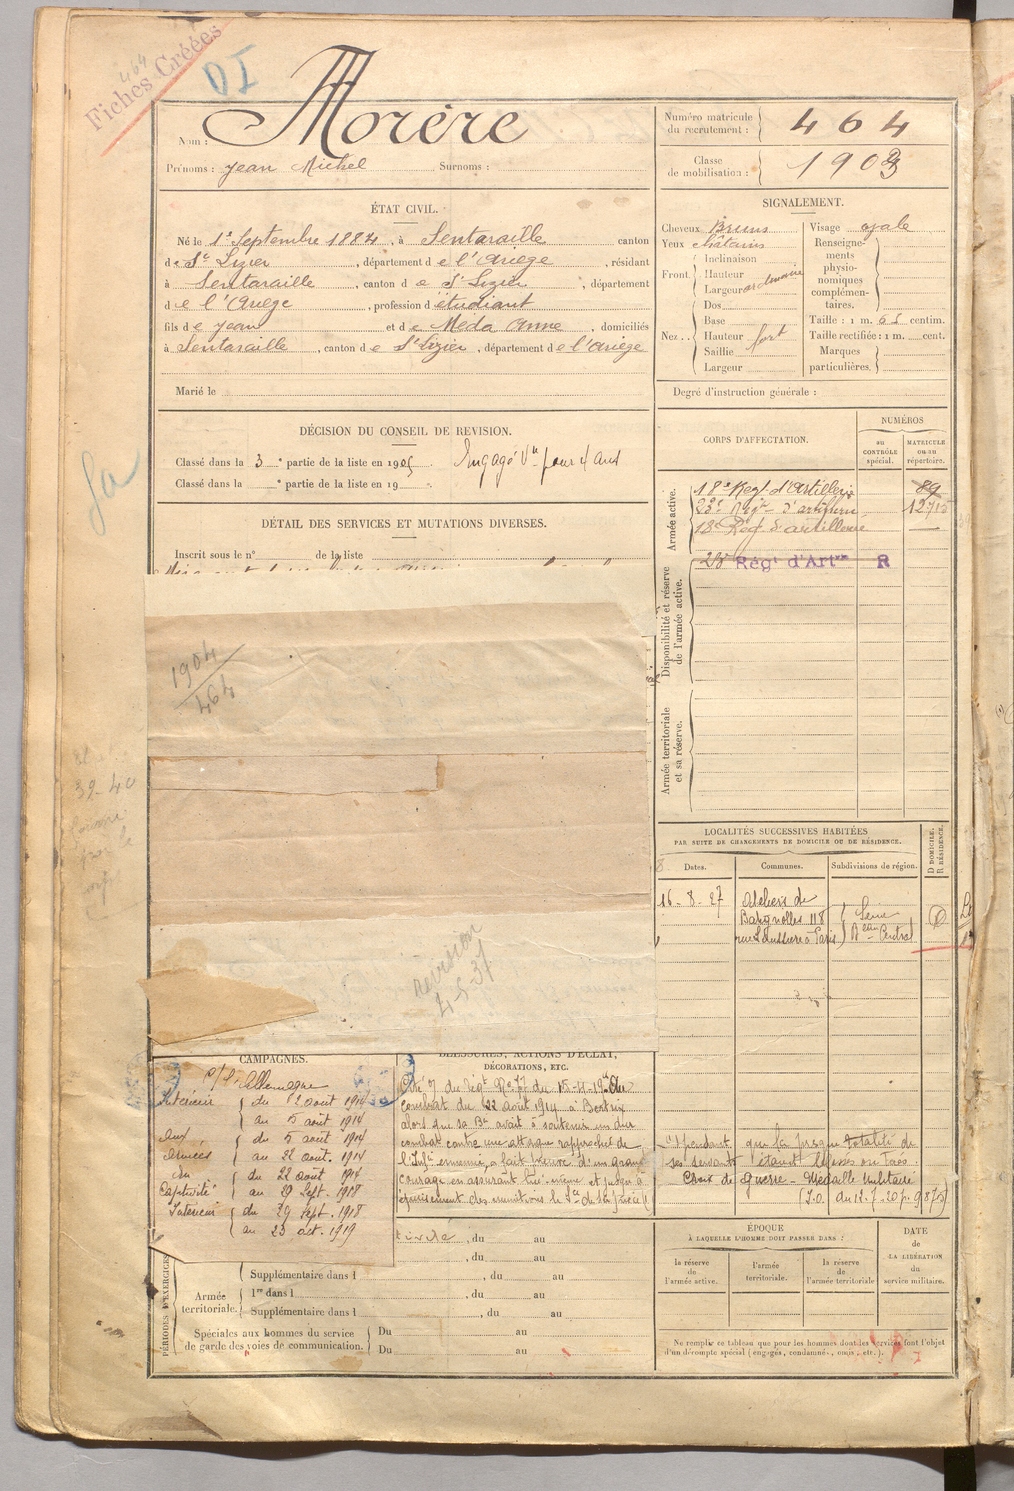 464
Fiches Créées
DI
Nom : Morère
Prénoms : Jean Michel Surnoms :
Numéro matricule du recrutement : 464
Classe de mobilisation : 1903
ÉTAT CIVIL.
Né le 1er Septembre 1884, à Sentaraille canton
de St Lizier, département de l'Ariège, résidant
à Sentaraille, canton de St Lizier, département
de l'Ariège, profession d'étudiant
fils de Jean et de Méda Anne, domiciliés
à Sentaraille, canton de St Lizier, département de l'Ariège
Marié le
SIGNALEMENT.
Cheveux Bruns
Yeux châtains
Front Inclinaison
Hauteur
Largeur ordinaire
Nez Dos
Base
Hauteur fort
Saillie
Largeur
Visage ovale
Renseignements physionomiques complémentaires.
Taille : 1 m. 65 centim.
Taille rectifiée : 1 m. cent.
Marques particulières.
Degré d'instruction générale :
DÉCISION DU CONSEIL DE REVISION.
Classé dans la 3e partie de la liste en 1905. Engagé Vre pour 4 ans
Classé dans la e partie de la liste en 19
DÉTAIL DES SERVICES ET MUTATIONS DIVERSES.
Inscrit sous le n° de la liste
1904
464
39-40
revision
4-5-37
CORPS D'AFFECTATION.
NUMÉROS
au CONTRÔLE spécial.
MATRICULE ou au répertoire.
Armée active.
18e Régt d'Artillerie 89
23e Régt d'artillerie 12715
18e Régt d'artillerie
Disponibilité et réserve de l'armée active.
23 Régt d'Artie R
Armée territoriale et sa réserve.
LOCALITÉS SUCCESSIVES HABITÉES
PAR SUITE DE CHANGEMENTS DE DOMICILE OU DE RÉSIDENCE.
Dates. Communes. Subdivisions de région. D DOMICILE. R RÉSIDENCE.
16-8-27 Ateliers de
Batignolles 118 Seine D
rue Saussure à Paris Beau Central
CAMPAGNES.
c/ l'Allemagne
Intérieur du 2 août 1914
au 5 août 1914
aux du 5 août 1914
Armées au 22 août 1914
En du 22 août 1914
Captivité au 29 Sept. 1918
Intérieur du 29 Sept. 1918
au 23 oct. 1919
BLESSURES, ACTIONS D'ÉCLAT,
DÉCORATIONS, ETC.
combat du 22 août 1914 à Bertrix
alors que sa Bie avait à soutenir un dur
combat contre une attaque rapprochée de
l'Infie ennemie, a fait preuve d'un grand
courage en assurant lui-même et jusqu'à
épuisement des munitions le
cependant que la presque totalité de
ses servants étaient blessés ou tués.
Croix de guerre - Médaille Militaire
(J.O. du 12-7-20 p. 9875)
PÉRIODES D'EXERCICES
, du au
, du au
Supplémentaire dans l , du au
Armée territoriale. 1re dans l , du au
Supplémentaire dans l , du au
Spéciales aux hommes du service de garde des voies de communication. Du au
Du au
ÉPOQUE
À LAQUELLE L'HOMME DOIT PASSER DANS :
la réserve de l'armée active.
l'armée territoriale.
la réserve de l'armée territoriale
DATE de LA LIBÉRATION du service militaire.
Ne remplir ce tableau que pour les hommes dont les services font l'objet
d'un décompte spécial (engagés, condamnés, omis, etc.).